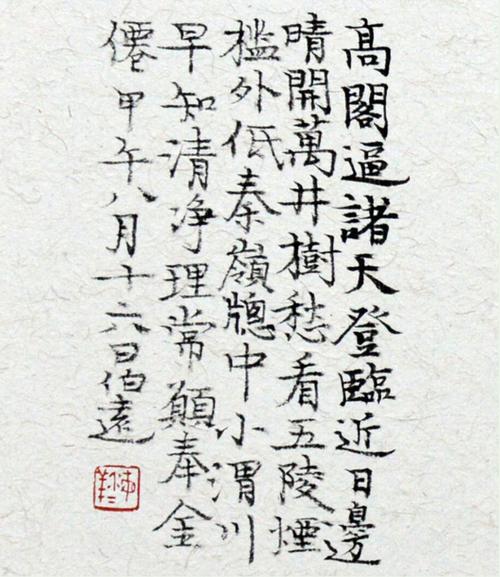 高閣逼諸天登臨近日邊
晴開萬井樹愁看五陵煙
檻外低秦嶺牕中小渭川
早知清浄理常願奉金
僊甲午八月十六日伯遠